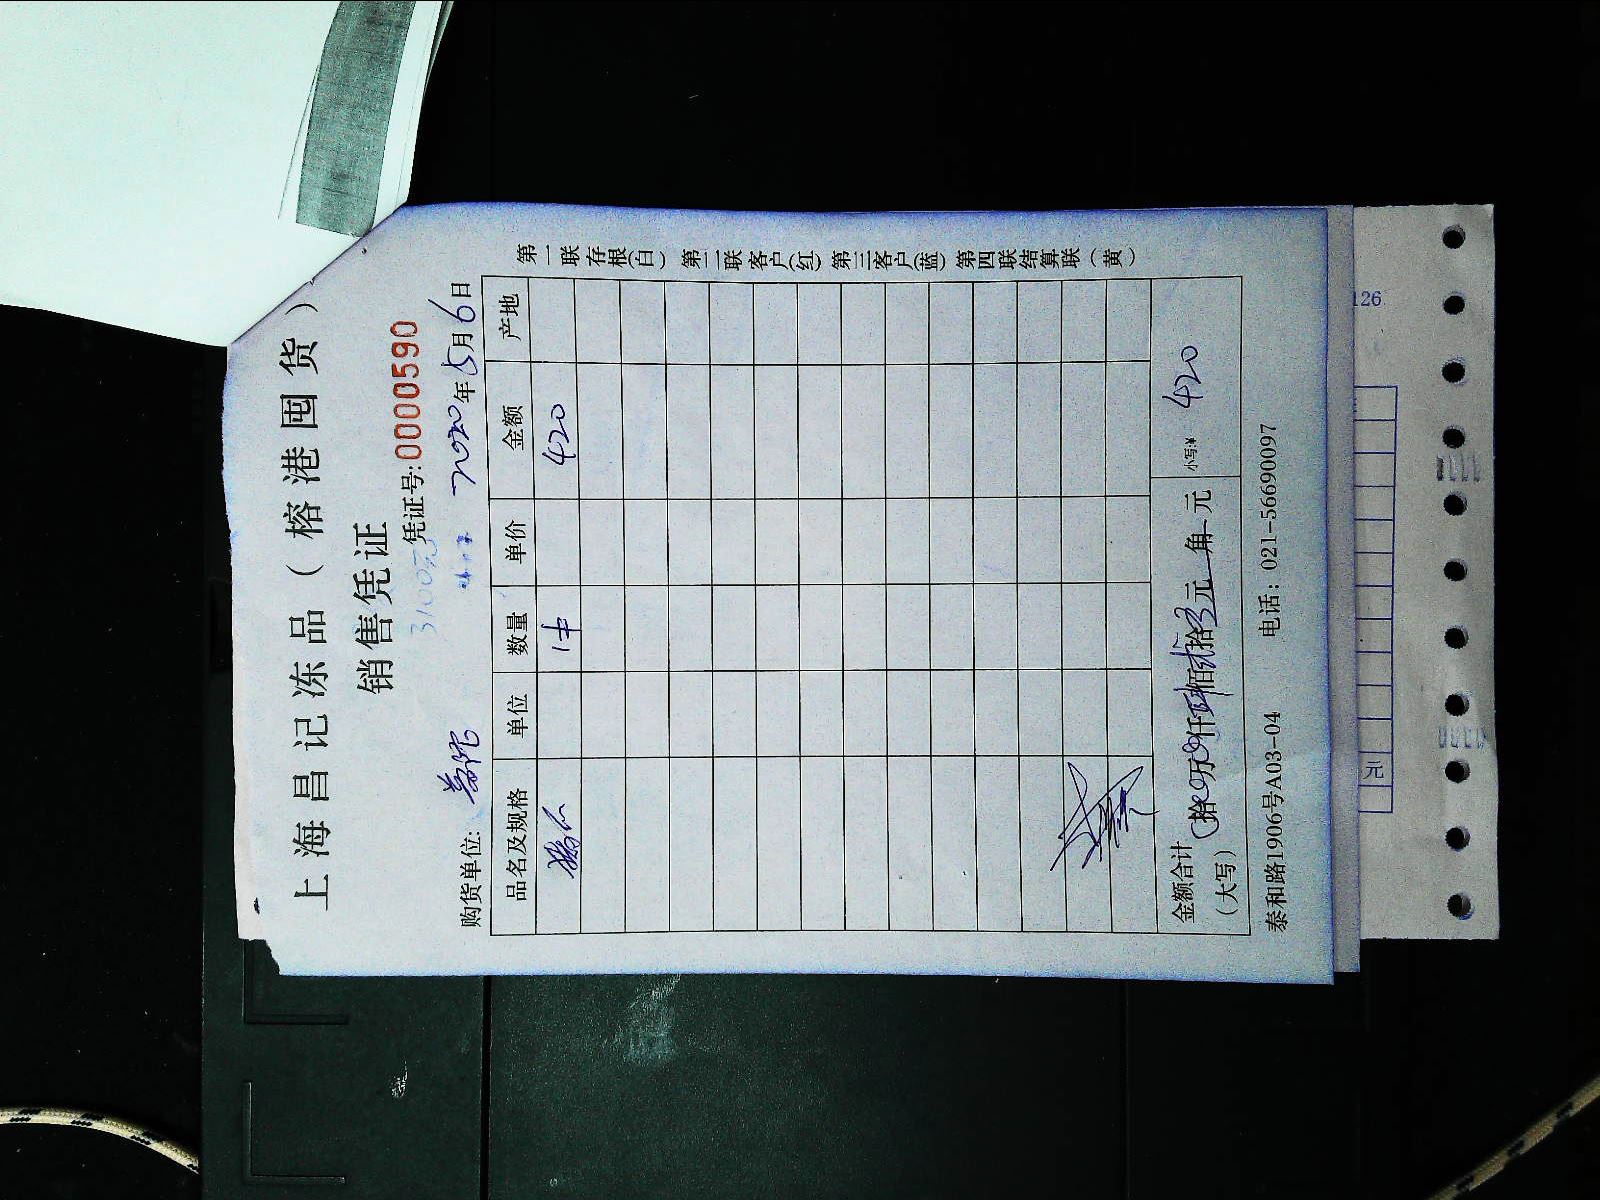 上海昌记冻品（榕港囤货）
销售凭证
凭证号:0000590
购货单位: 2020年5月6日
品名及规格 单位 数量 单价 金额 产地
1件 420
金额合计（大写） 拾万仟肆佰贰拾元角元 小写:¥ 420
泰和路1906号A03-04 电话：021-56690097
第一联存根(白) 第二联客户(红) 第三客户(蓝) 第四联结算联(黄)
126
元